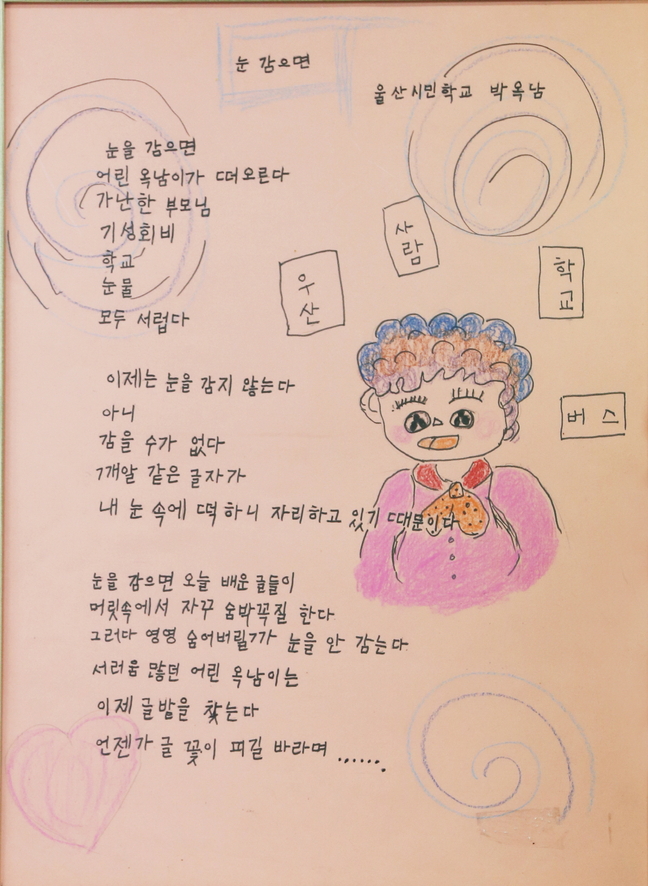 눈 감으면
울산시민학교 박옥남
눈을 감으면
어린 옥남이가 떠오른다
가난한 부모님
기성회비
학교
눈물
모두 서럽다
사람
우산
학교
버스
이제는 눈을 감지 않는다
아니
감을 수가 없다
깨알 같은 글자가
내 눈 속에 떡 하니 자리하고 있기 때문이다
눈을 감으면 오늘 배운 글들이
머릿속에서 자꾸 숨박꼭질 한다
그러다 영영 숨어버릴까 눈을 안 감는다
서러움 많던 어린 옥남이는
이제 글밥을 찾는다
언젠가 글 꽃이 피길 바라며 .......